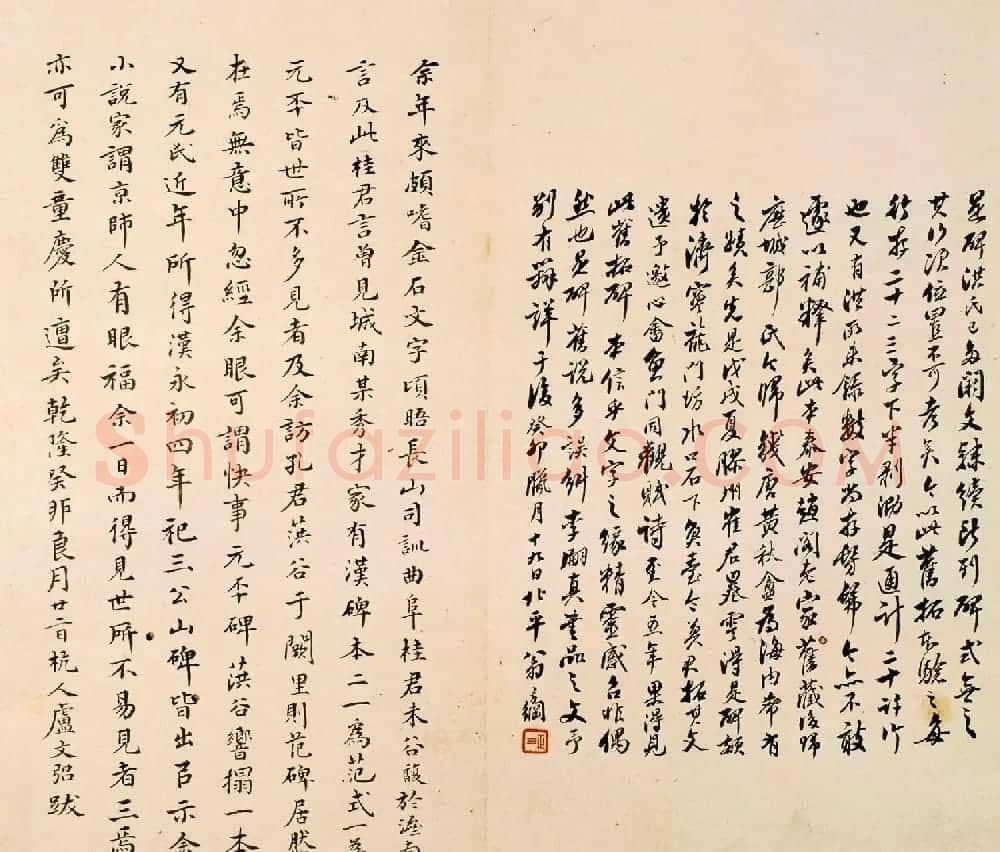 是碑洪氏已多闕文隸續所列碑式無之
其行次位置不可考矣今以此舊拓本驗之每
行存二十二三字下半剥泐是通計二十許行
也又有洪所未錄數字尚存髣髴今亦不敢
遽以補釋矣此本泰安趙閣老家舊藏後歸
歷城郭氏今歸錢唐黃秋盦為海内希有
之蹟矣先是戊戌夏膠州崔君墨雲得是碑額
於濟寧龍門坊水口石下矣臺令矣君拓其文
遺予邀心畬魚門同觀賦詩至今五年果得見
此舊拓碑本信乎文字之緣精靈感召非偶
然也是碑舊說多誤糾李嗣真書品之文予
別有辨詳于後癸卯臘月十九日北平翁方綱
余年來頗嗜金石文字頃晤長山司訓曲阜桂君未谷馥於濟南
言及此桂君言曾見城南某秀才家有漢碑本二一為范式一為
元丕皆世所不多見者及余訪孔君葓谷于闕里則范碑居然
在焉無意中忽經余眼可謂快事元丕碑葓谷響搨一本
又有元氏近年所得漢永初四年祀三公山碑皆出㠯示余
小說家謂京師人有眼福余一日而得見世所不易見者三焉
亦可為雙童慶所遭矣乾隆癸卯良月廿二日杭人盧文弨跋
Shufaziliao.COM